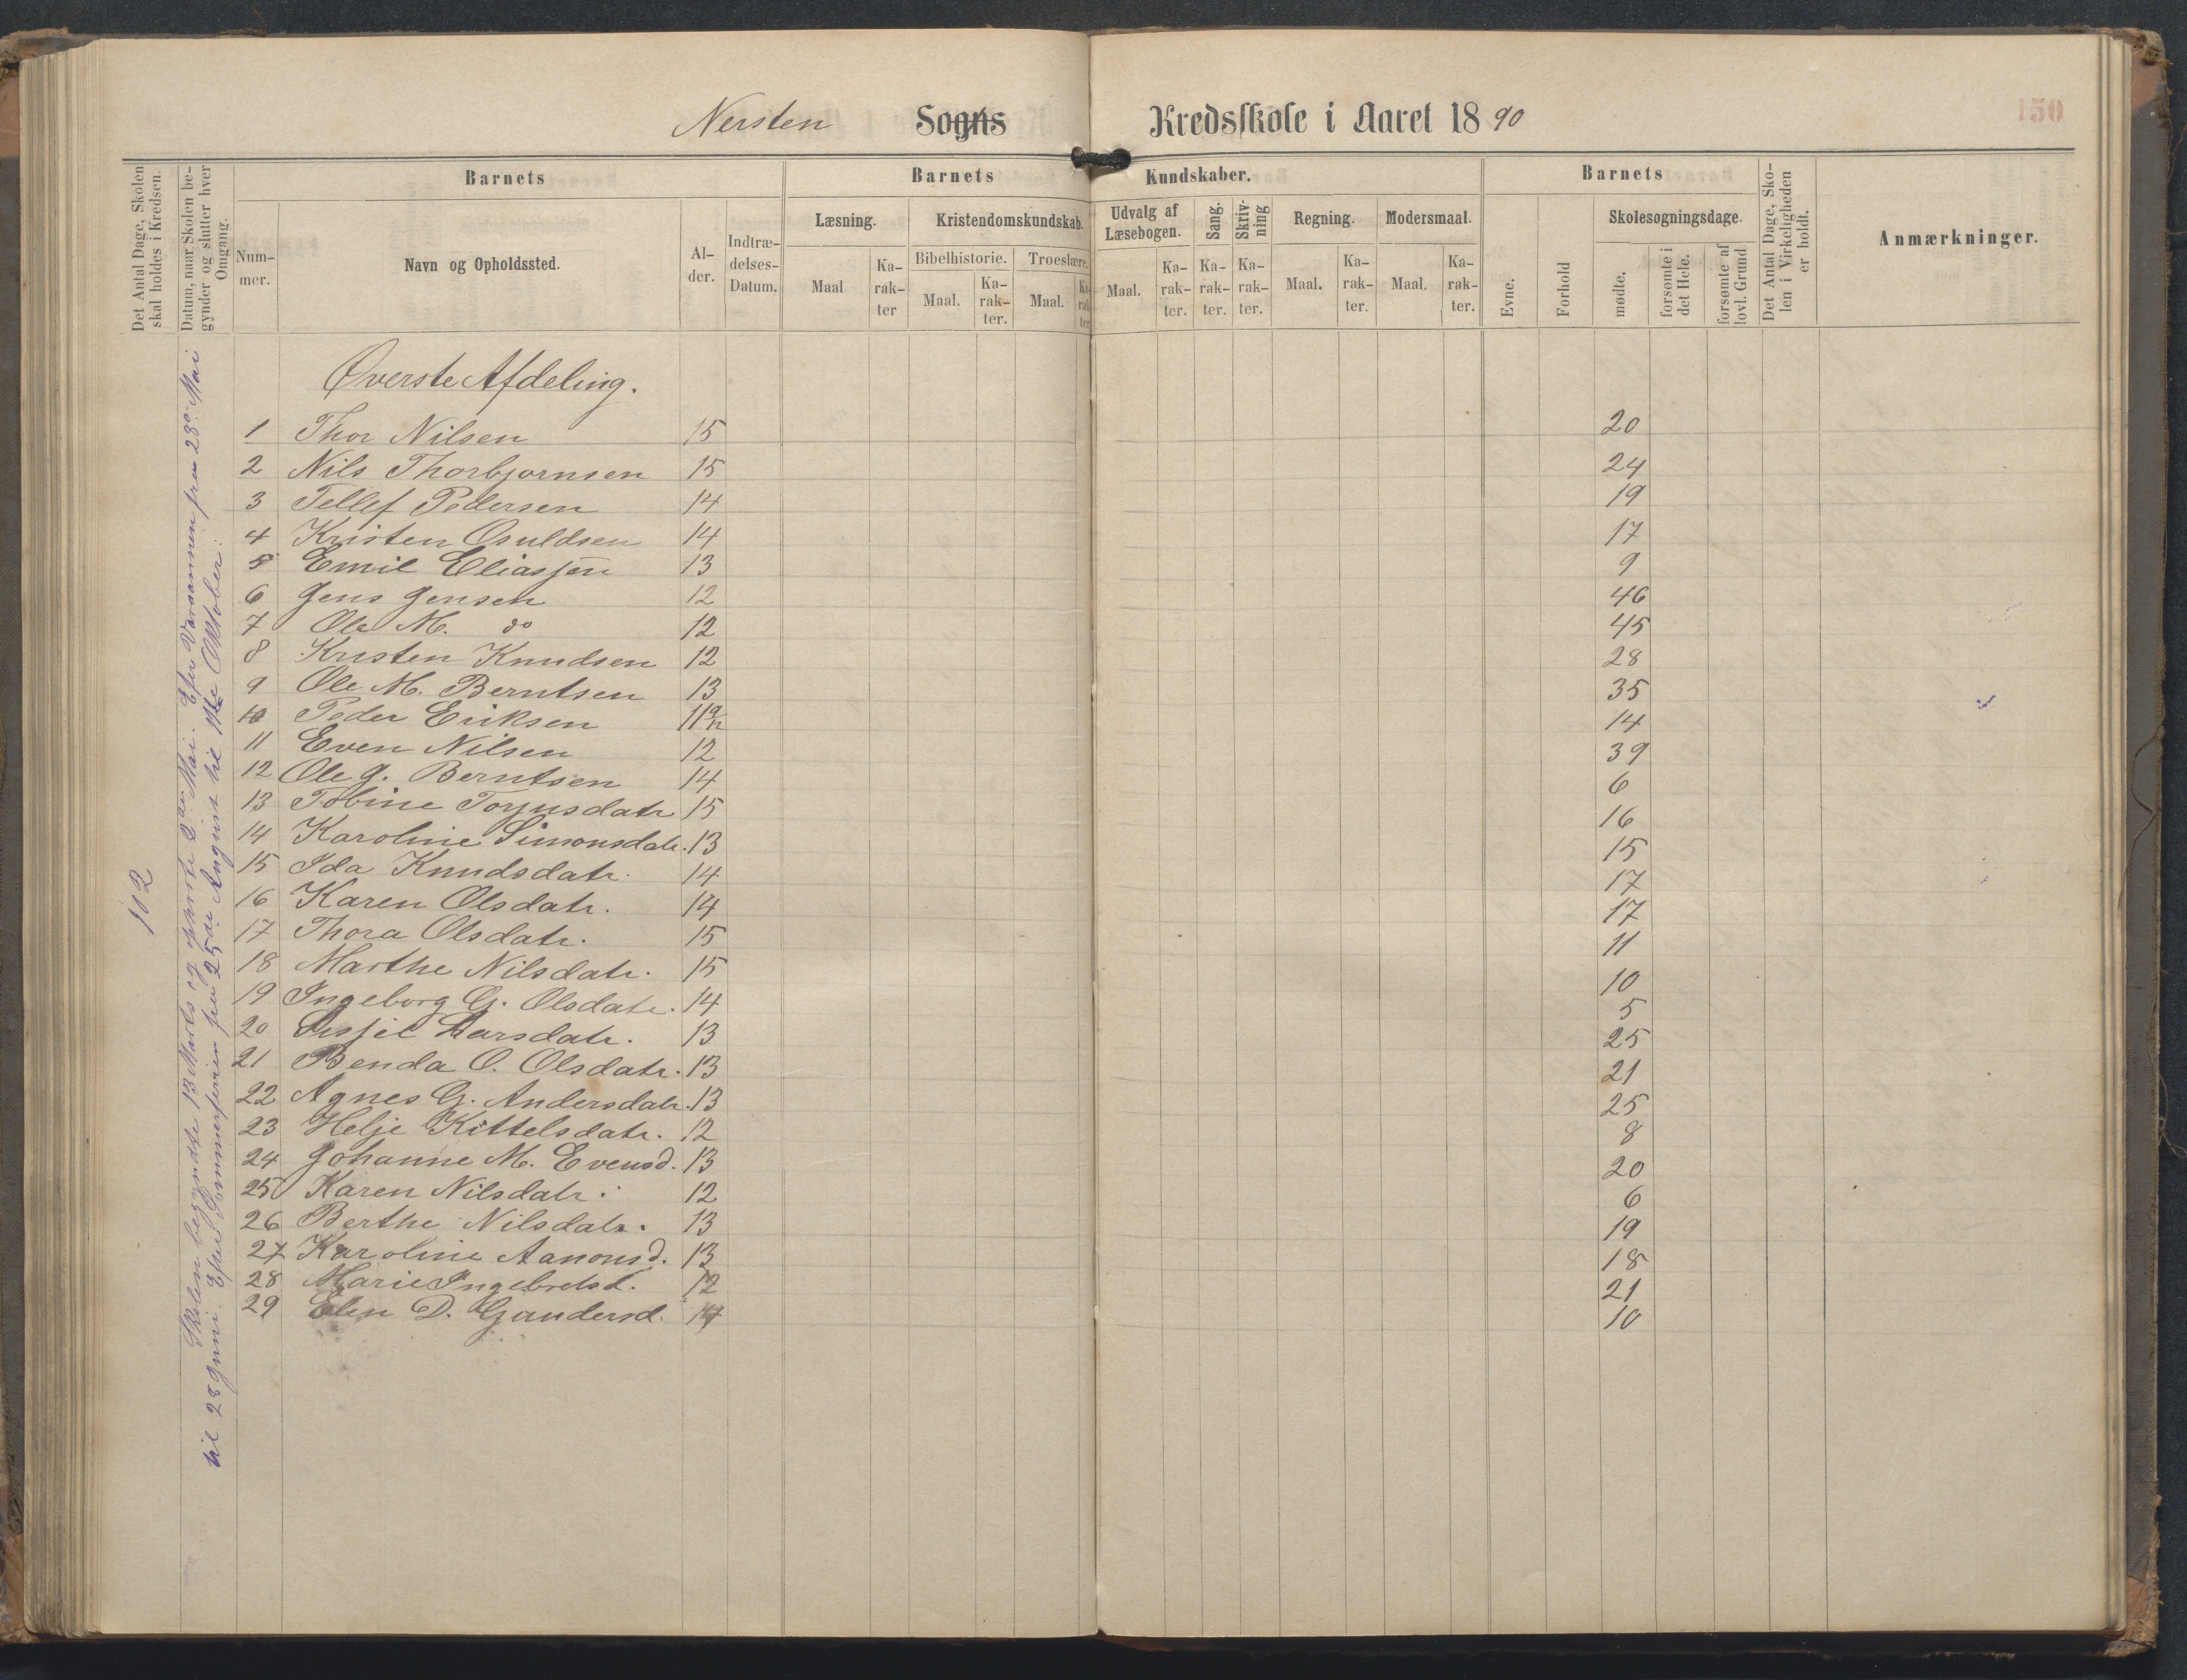 Nersten Sogns Kredsskole i Aaret 1890
150
Det Antal Dage, Skolen skal holdes i Kredsen.
Datum, naar Skolen begynder og slutter hver Omgang.
Barnets
Nummer.
Navn og Opholdssted.
Alder.
Indtrædelses-Datum.
Barnets Kundskaber.
Læsning.
Maal
Karakter
Kristendomskundskab.
Bibelhistorie.
Maal.
Karakter.
Troeslære.
Maal.
Karakter
Udvalg af Læsebogen.
Maal.
Karakter.
Sang.
Karakter.
Skrivning
Karakter.
Regning.
Maal.
Karakter.
Modersmaal.
Maal.
Karakter.
Barnets
Evne.
Forhold
Skolesøgningsdage.
mødte.
forsømte i det Hele.
forsømte af lovl. Grund
Det Antal Dage, Skolen i Virkeligheden er holdt.
Anmærkninger.
102
Skolen begyndte 13 Marts og ophørte 2den Mai. Efter Varaannen fra 28de Mai
til 28 Juni. Efter Sommerferien fra 25de August til 11te Oktober.
Øverste Afdeling.
1 Thor Nilsen 15 20
2 Nils Thorbjørnsen 15 24
3 Tellef Pedersen 14 19
4 Kristen Osuldsen 14 17
5 Emil Eliassen 13 9
6 Jens Jensen 12 46
7 Ole M. do 12 45
8 Kristen Knudsen 12 28
9 Ole M. Berntsen 13 35
10 Peder Eriksen 11 9/12 14
11 Even Nilsen 12 39
12 Ole J. Berntsen 14 6
13 Tobine Torjusdatr 15 16
14 Karoline Simonsdatr. 13 15
15 Ida Knudsdatr. 14 17
16 Karen Olsdatr. 14 17
17 Thora Olsdatr. 15 11
18 Marthe Nilsdatr. 15 10
19 Ingeborg G. Olsdatr. 14 5
20 Sisjel Larsdatr. 13 25
21 Benda O. Olsdatr. 13 21
22 Agnes G. Andersdatr. 13 25
23 Helje Kittelsdatr. 12 8
24 Johanne M. Evensd. 13 20
25 Karen Nilsdatr. 12 6
26 Berthe Nilsdatr. 13 19
27 Karoline Aanonsd. 13 18
28 Marie Ingebretsd. 12 21
29 Elen D. Gundersd. 10